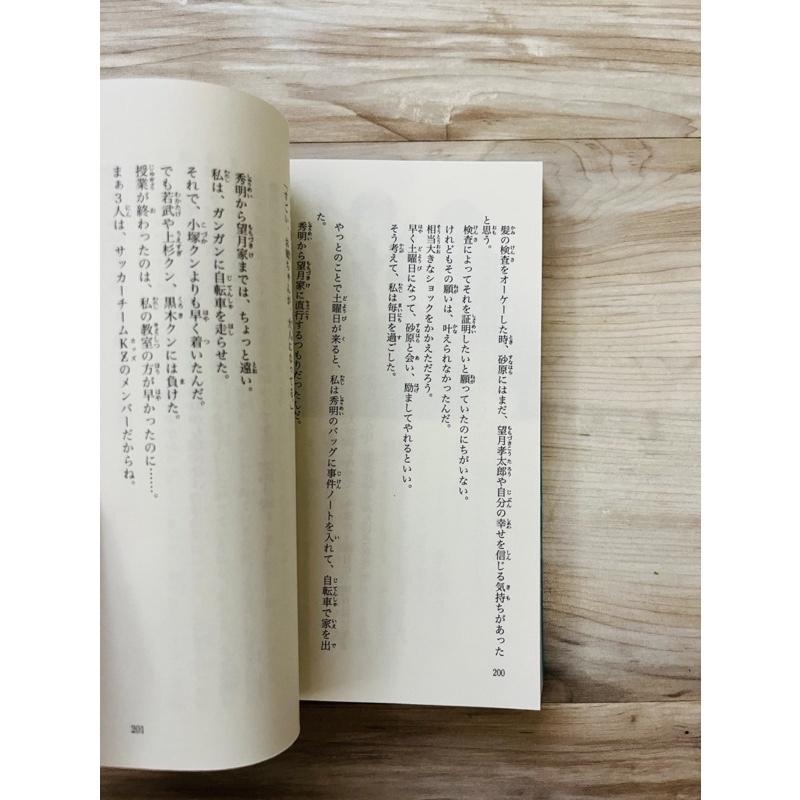 髪の検査をオーケーした時、砂原にはまだ、望月孝太郎や自分の幸せを信じる気持ちがあった
と思う。
検査によってそれを証明したいと願っていたのにちがいない。
けれどもその願いは、叶えられなかったんだ。
相当大きなショックをかかえただろう。
早く土曜日になって、砂原と会い、励ましてやれるといい。
そう考えて、私は毎日を過ごした。
やっとのことで土曜日が来ると、私は秀明のバッグに事件ノートを入れて、自転車で家を出
た。
秀明から望月家に直行するつもりだったんだ。
200
秀明から望月家までは、ちょっと遠い。
私は、ガンガンに自転車を走らせた。
それで、小塚クンよりも早く着いたんだ。
でも若武や上杉クン、黒木クンには負けた。
授業が終わったのは、私の教室の方が早かったのに……。
まぁ3人は、サッカーチームKZのメンバーだからね。
201